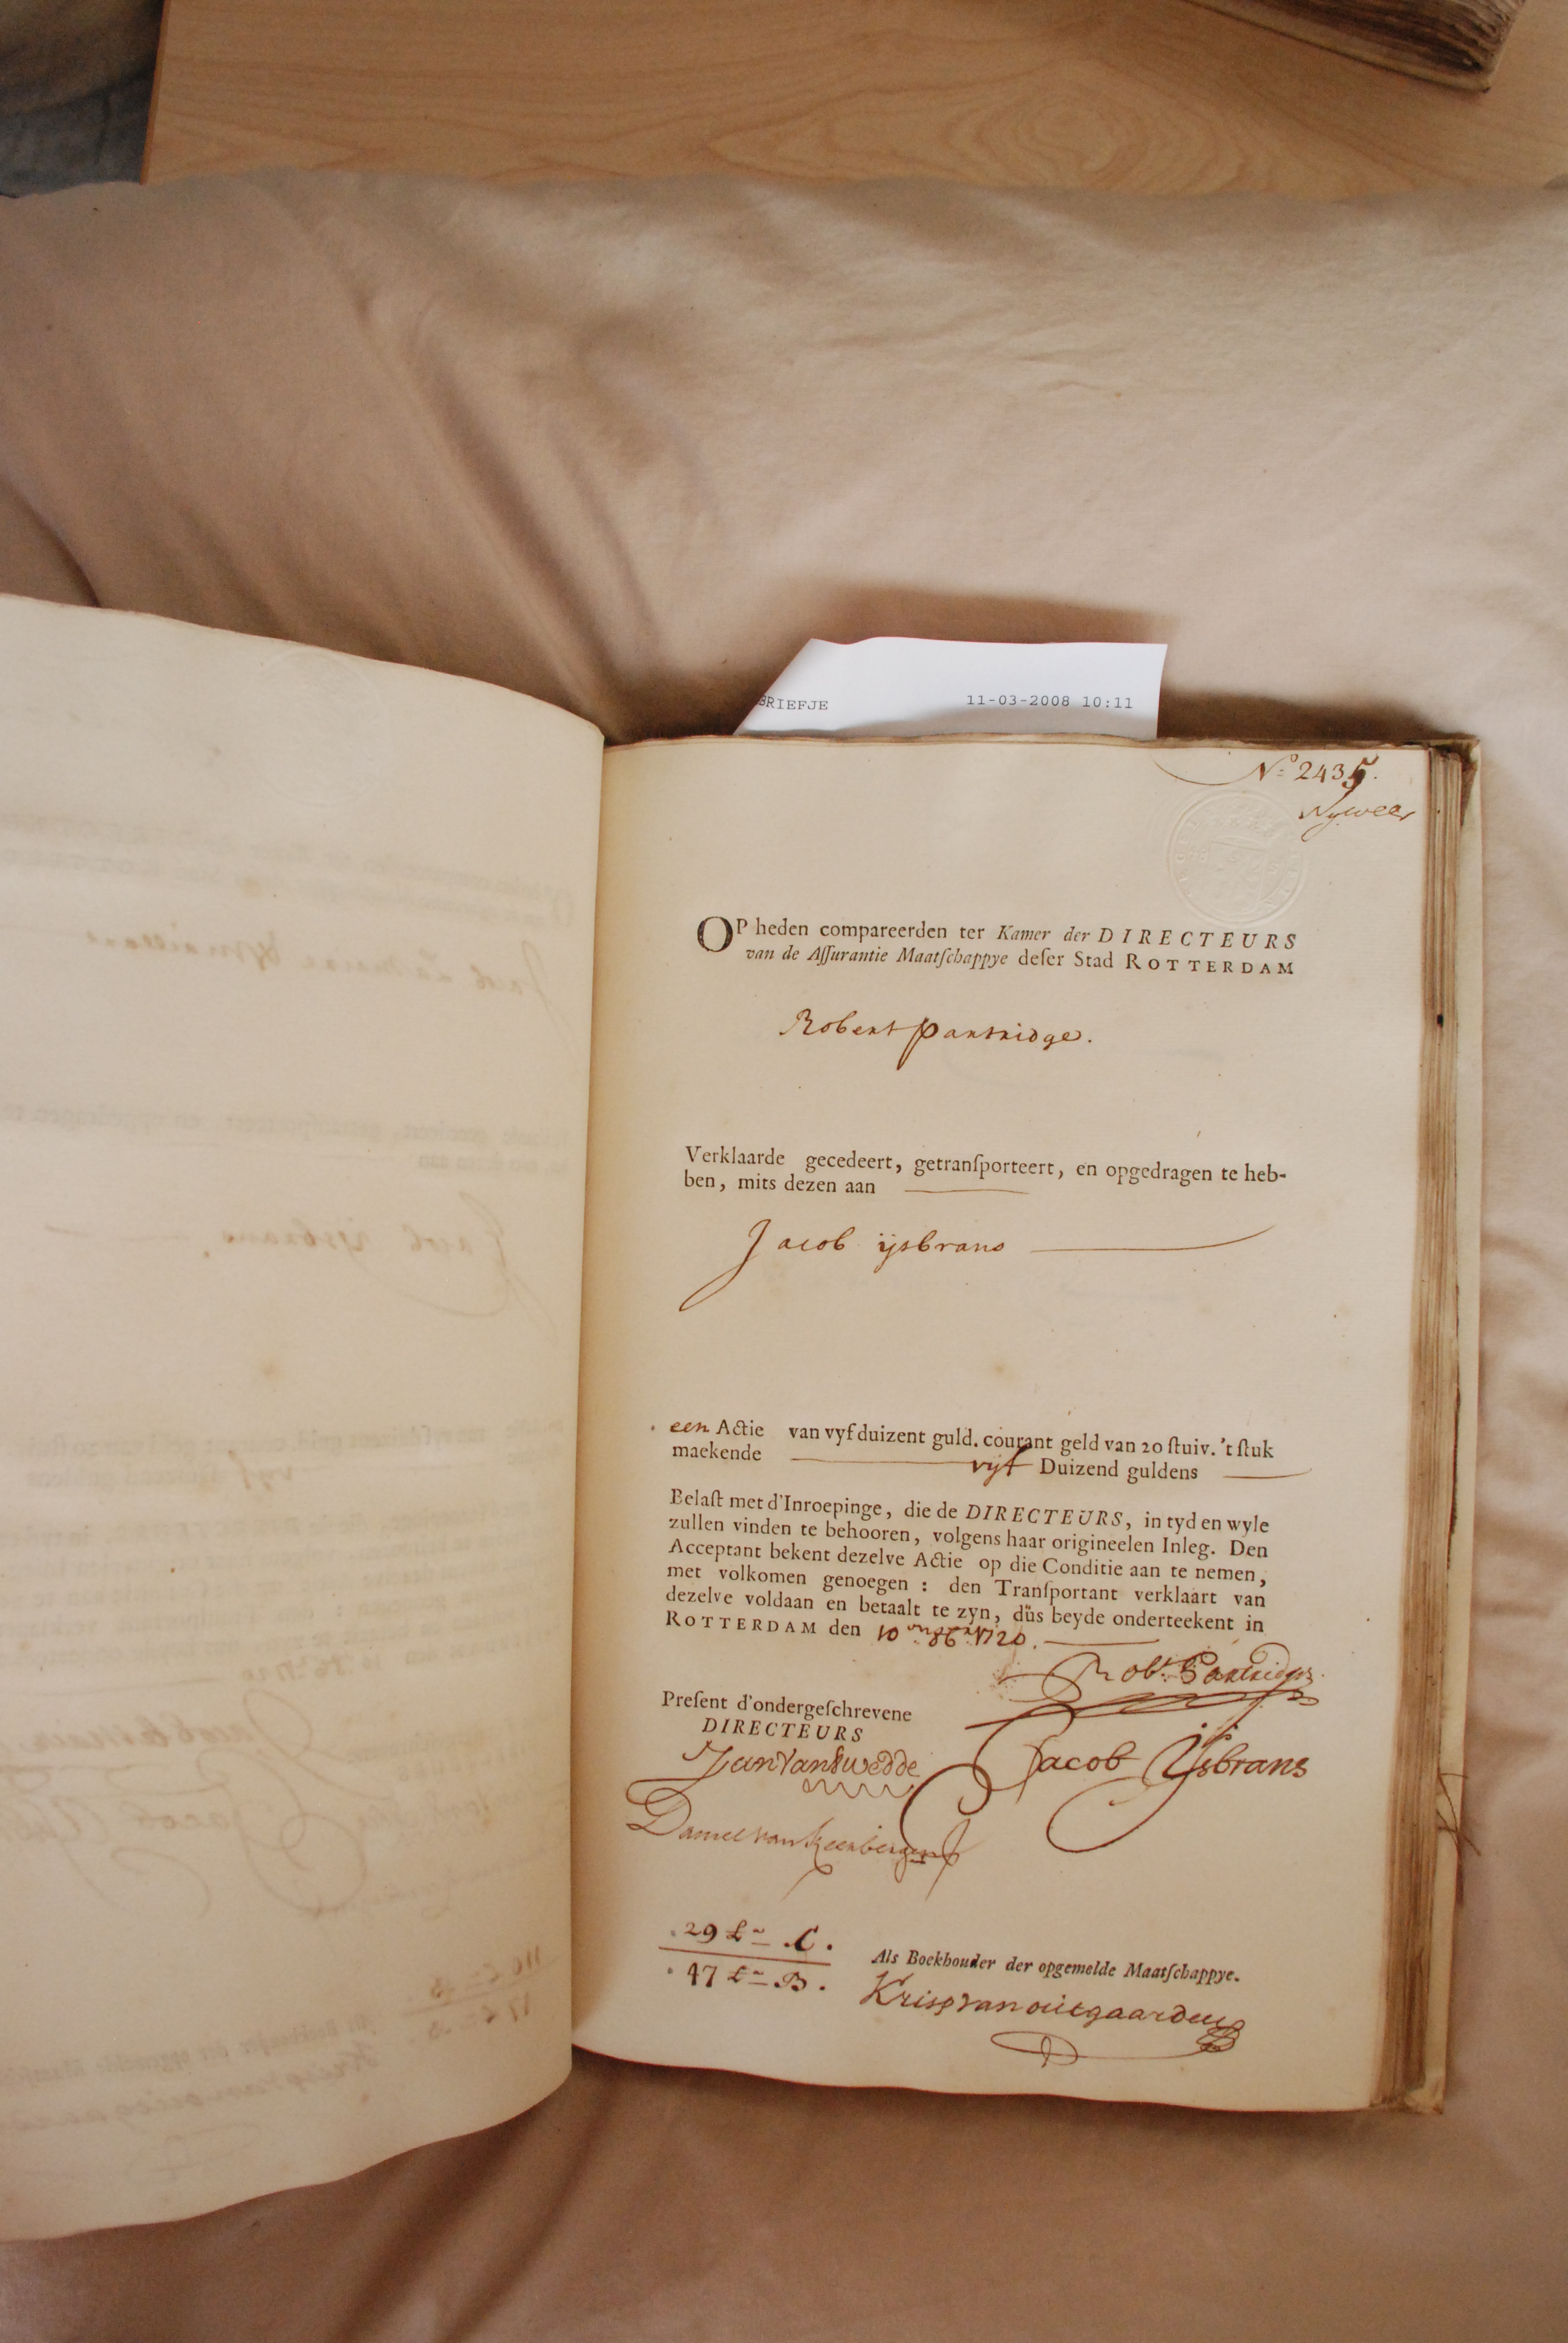 BRIEFJE 11-03-2008 10:11
No 2435.
OP heden compareerden ter Kamer der DIRECTEURS
van de Aſſurantie Maatſchappye deſer Stad ROTTERDAM
Robert Partridge.
Verklaarde gecedeert, getranſporteert, en opgedragen te heb-
ben, mits dezen aan
Jacob ijsbrans
een Actie van vyf duizent guld. courant geld van 20 ſtuiv. 't ſtuk
maekende vijf Duizend guldens
Belaſt met d'Inroepinge, die de DIRECTEURS, in tyd en wyle
zullen vinden te behooren, volgens haar origineelen Inleg. Den
Acceptant bekent dezelve Actie op die Conditie aan te nemen,
met volkomen genoegen : den Tranſportant verklaart van
dezelve voldaan en betaalt te zyn, dus beyde onderteekent in
ROTTERDAM den 10 1720.
Robt. Partridge
Preſent d'ondergeſchrevene
DIRECTEURS
Jan Van Twedde
Jacob IJsbrans
Daniel van
29 C.
47 B.
Als Boekhouder der opgemelde Maatſchappye.
Krisp van outgaarden